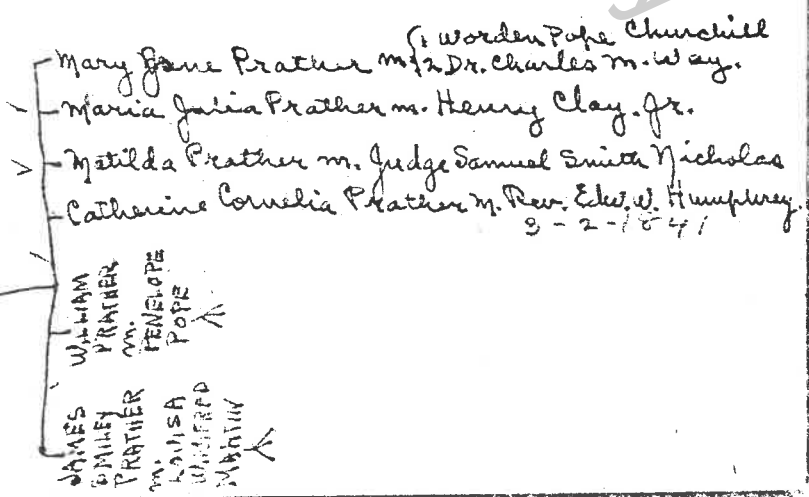 Mary Jane Prather m. {1 Worden Pope Churchill
2 Dr. Charles M. Way.
Maria Julia Prather m. Henry Clay. Jr.
Matilda Prather m. Judge Samuel Smith Nicholas
Catherine Cornelia Prather M. Rev. Edw. W. Humphrey.
3-2-1841
WILLIAM
PRATHER
m.
PENELOPE
POPE
JAMES
SMILEY
PRATHER
m.
LOUISA
MARTIN